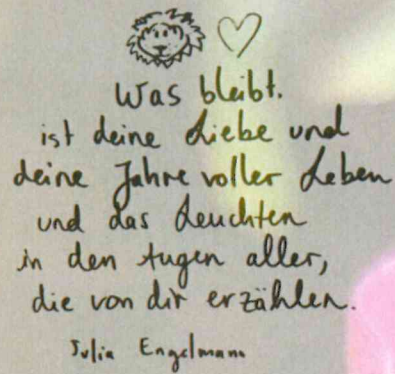 Was bleibt.
ist deine Liebe und
deine Jahre voller Leben
und das Leuchten
in den Augen aller,
die von dir erzählen.
Julia Engelmann